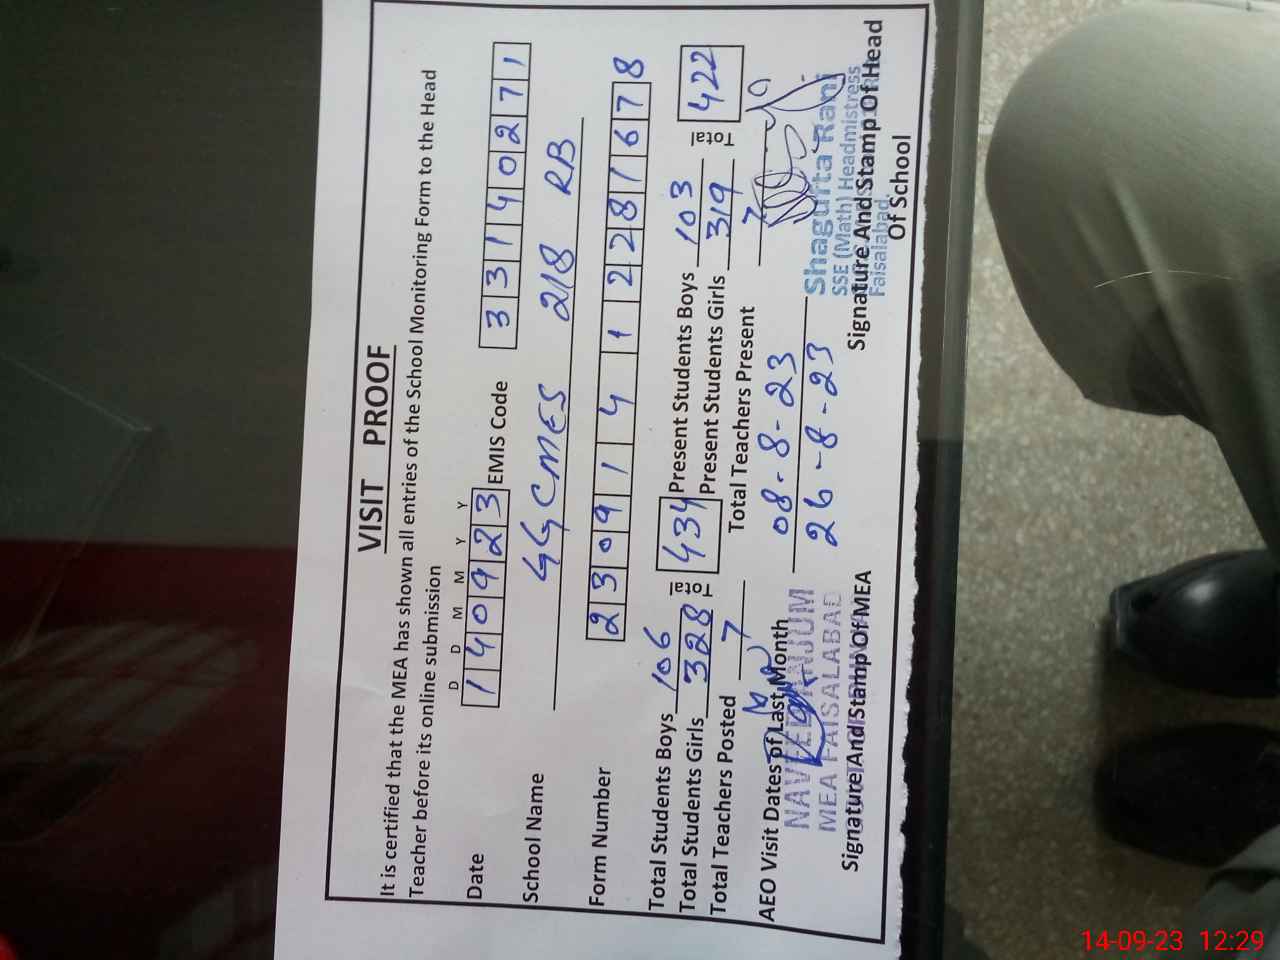 VISIT PROOF
It is certified that the MEA has shown all entries of the School Monitoring Form to the Head
Teacher before its online submission
D D M M Y Y
Date 140923 EMIS Code 33140271
School Name GGCMES 218 RB
Form Number 23091412281678
Total Students Boys 106 Total 434 Present Students Boys 103 Total 422
Total Students Girls 328 Present Students Girls 319
Total Teachers Posted 7 Total Teachers Present 7
AEO Visit Dates of Last Month 08-8-23
26-8-23
NAVEED ANJUM
MEA FAISALABAD
Signature And Stamp Of MEA
Shagufta Rani
SSE (Math) Headmistress
Faisalabad.
Signature And Stamp Of Head
Of School
14-09-23 12:29